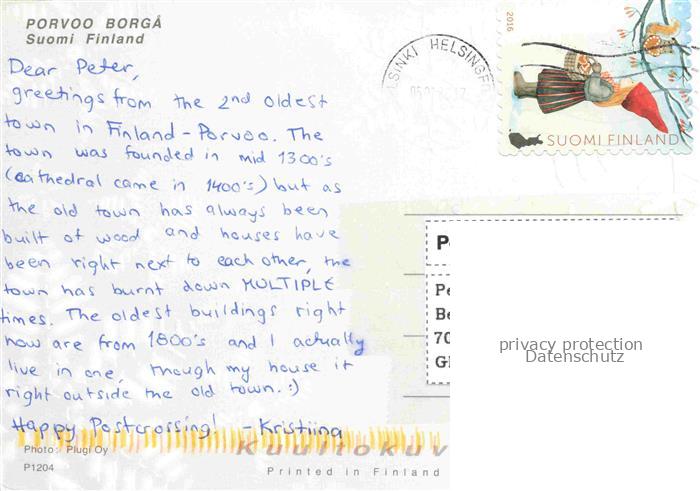 PORVOO BORGÅ
Suomi Finland
Dear Peter,
greetings from the 2nd oldest
town in Finland - Porvoo. The
town was founded in mid 1300's
(cathedral came in 1400's) but as
the old town has always been
built of wood and houses have
been right next to each other, the
town has burnt down MULTIPLE
times. The oldest buildings right
now are from 1800's and I actually
live in one, though my house it
right outside the old town. :)
Happy Postcrossing! - Kristiina
Photo: Plugi Oy
P1204
Printed in Finland
HELSINGF
2016
SUOMI FINLAND
P
Pe
Be
70
privacy protection
Datenschutz